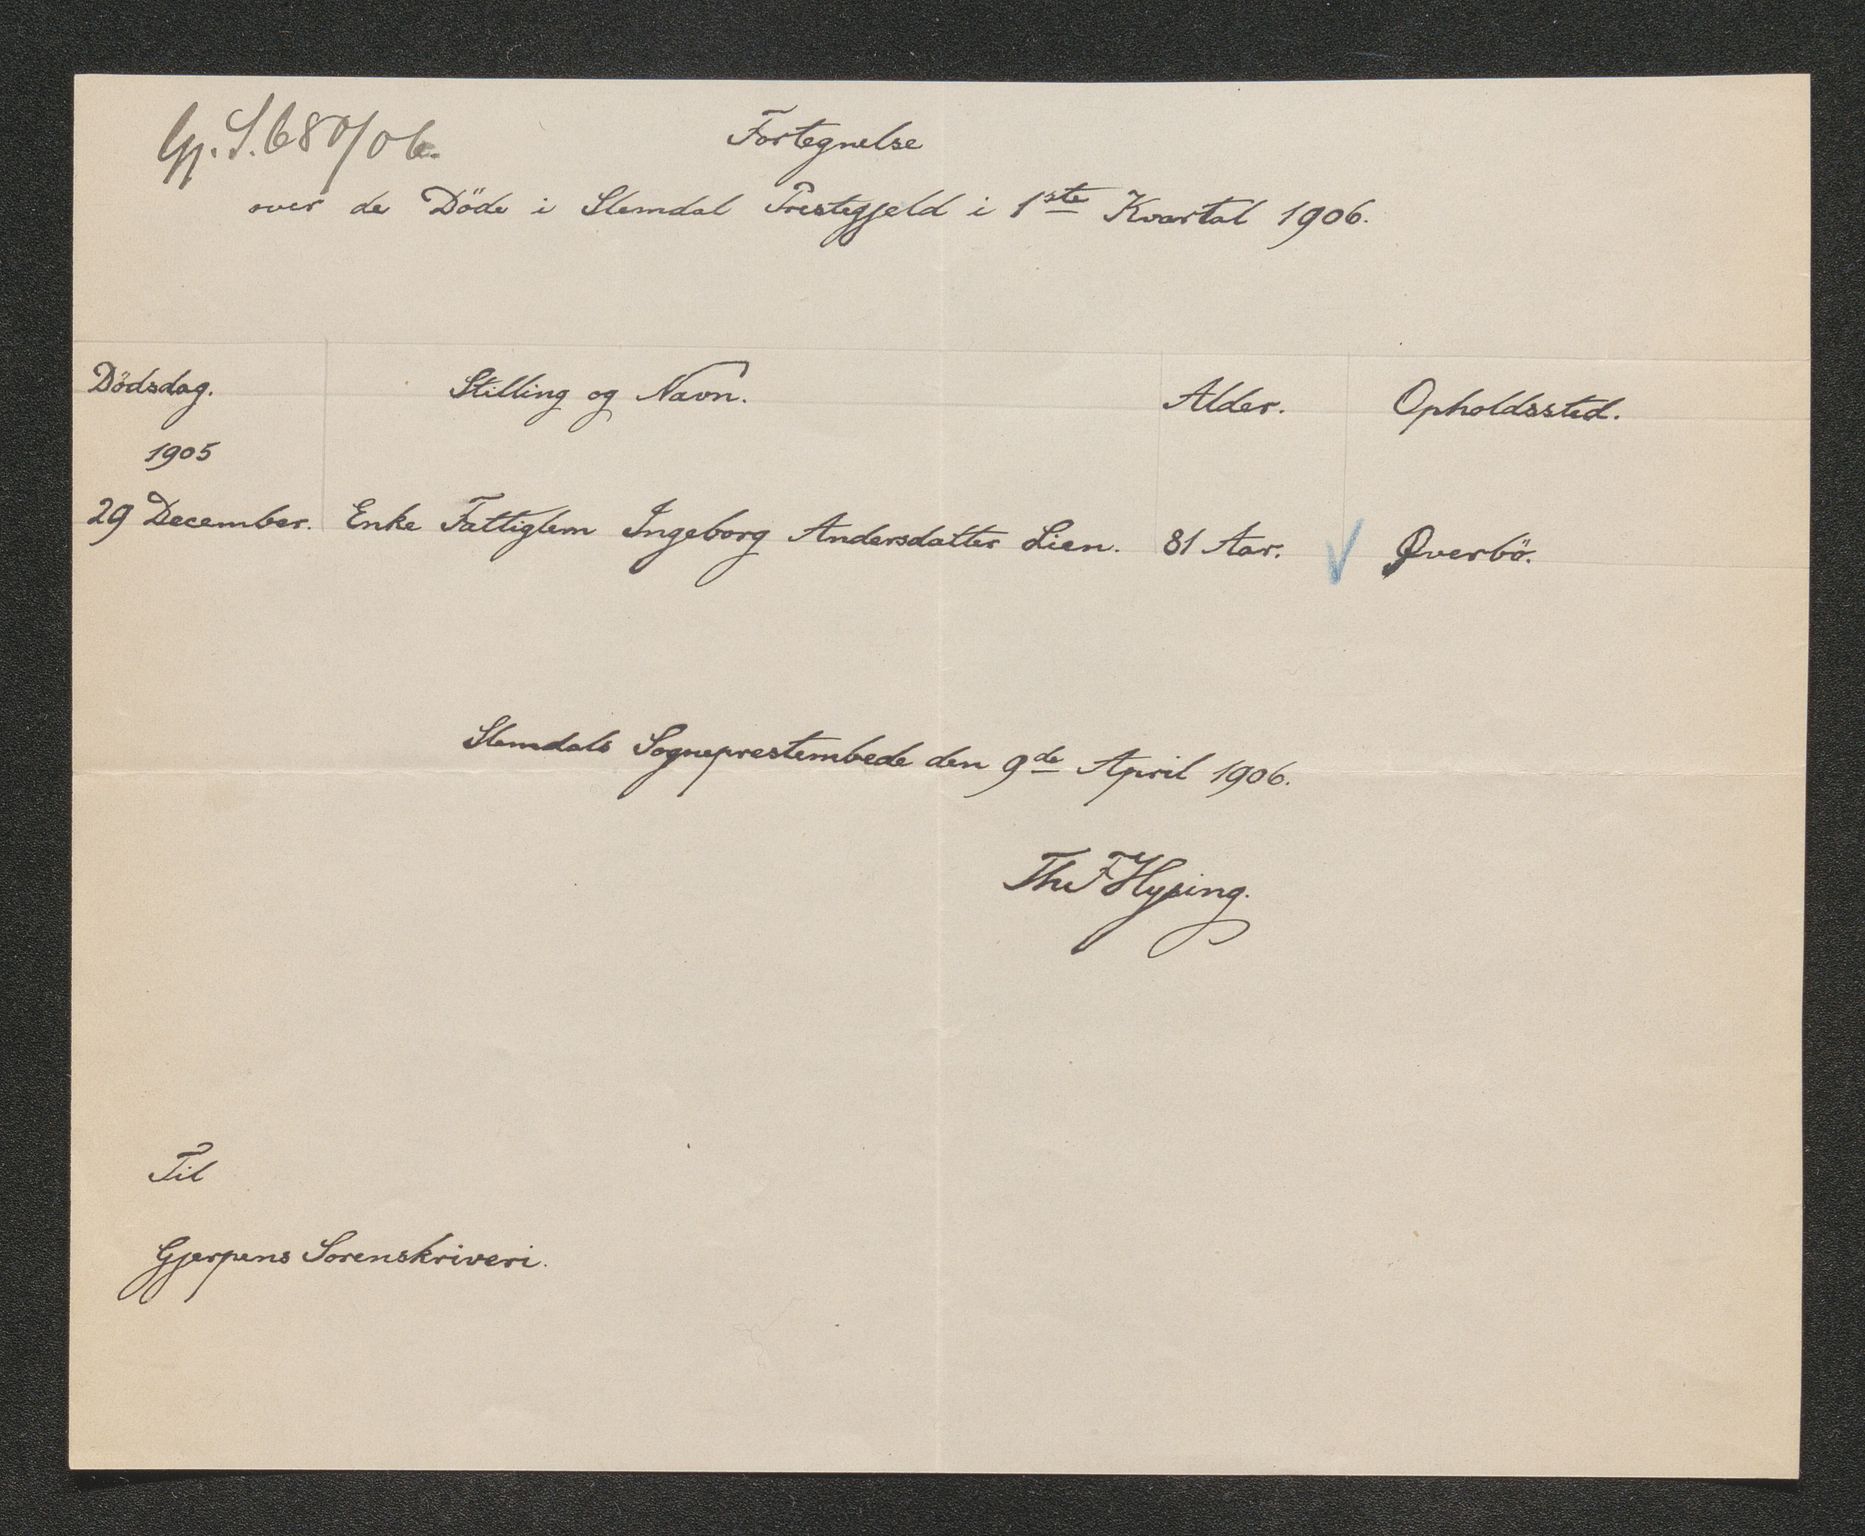 Gj. S. 680/06.
Fortegnelse
over de Döde i Slemdal Prestegjeld i 1ste Kvartal 1906.
Dödsdag. Stilling og Navn. Alder. Opholdssted.
1905
29 December. Enke Fattiglem Ingeborg Andersdatter Lien. 81 Aar. Øverbö.
Slemdals Sogneprestembede den 9de April 1906.
Th. F Hysing.
Til
Gjerpens Sorenskriveri.